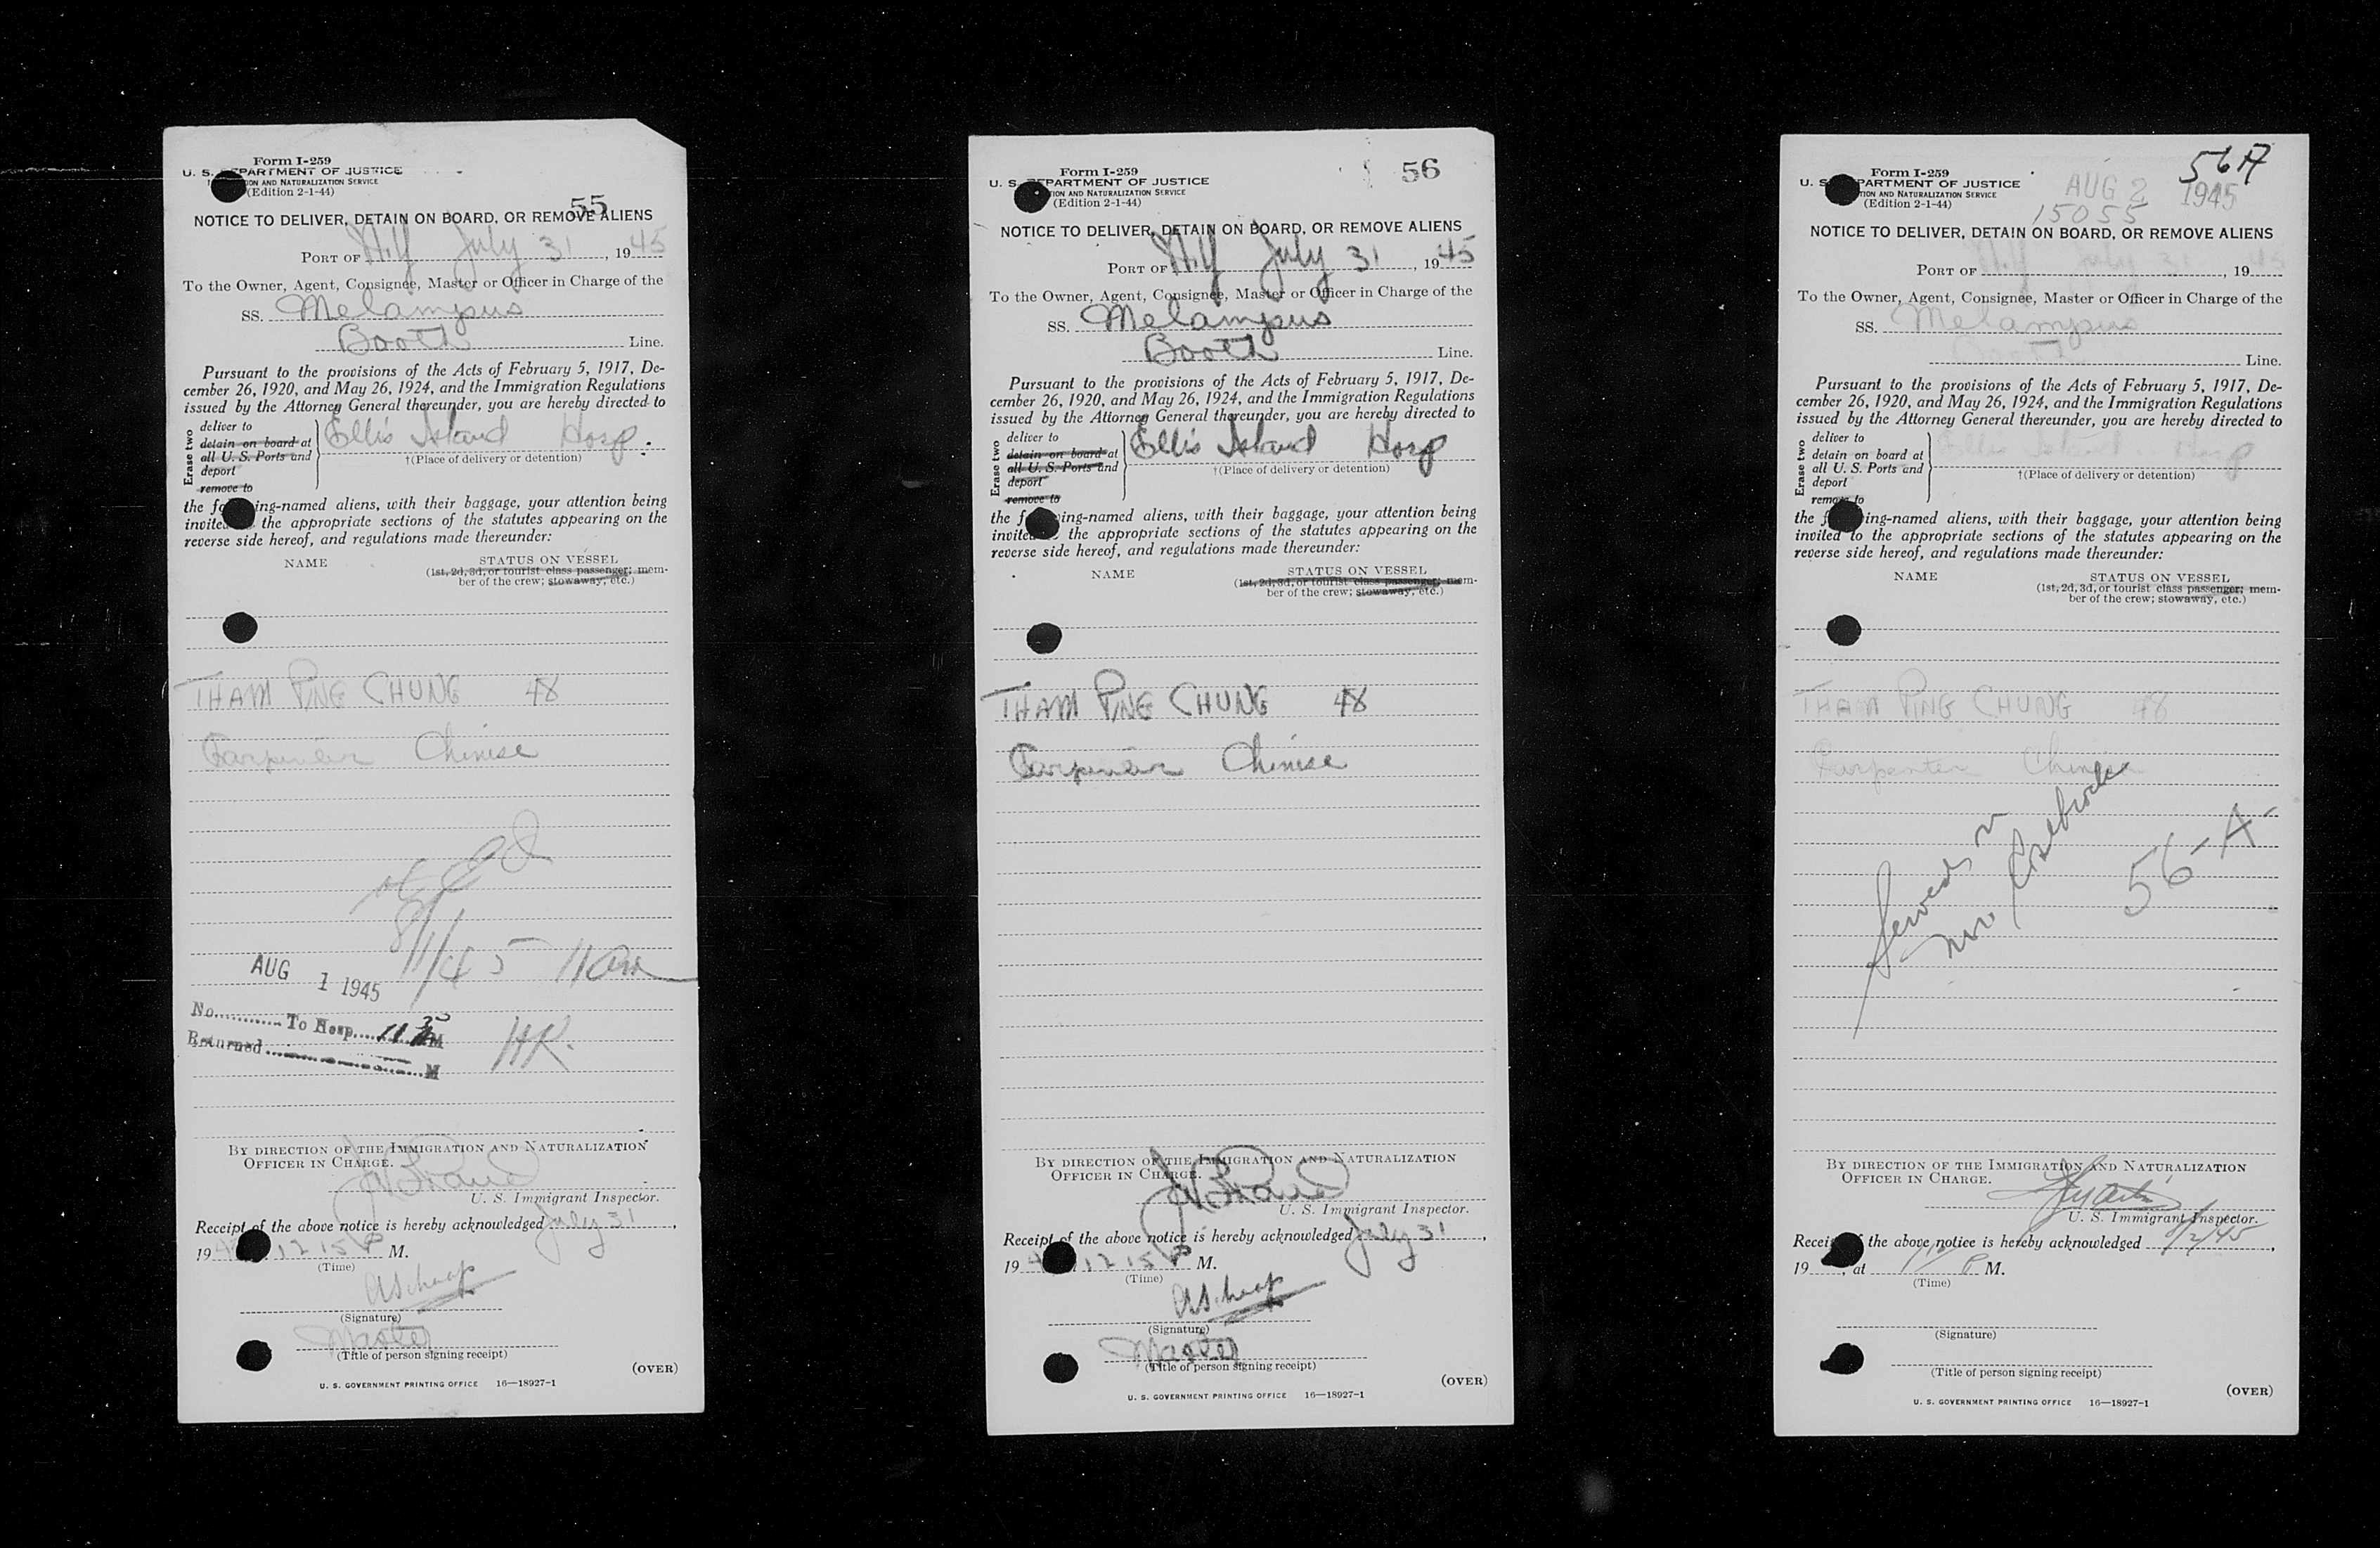 Form I-259
U. S. DEPARTMENT OF JUSTICE
ION AND NATURALIZATION SERVICE
(Edition 2-1-44)
55
NOTICE TO DELIVER, DETAIN ON BOARD, OR REMOVE ALIENS
PORT OF N.Y July 31, 1945
To the Owner, Agent, Consignee, Master or Officer in Charge of the
SS. Melampus
Booth Line.
Pursuant to the provisions of the Acts of February 5, 1917, De-
cember 26, 1920, and May 26, 1924, and the Immigration Regulations
issued by the Attorney General thereunder, you are hereby directed to
Erase two
deliver to
detain on board at
all U. S. Ports and
deport
remove to
Ellis Island Hosp.
†(Place of delivery or detention)
the following-named aliens, with their baggage, your attention being
invited to the appropriate sections of the statutes appearing on the
reverse side hereof, and regulations made thereunder:
NAME STATUS ON VESSEL
(1st, 2d, 3d, or tourist class passenger; mem-
ber of the crew; stowaway, etc.)
THAM PING CHUNG 48
Carpenter Chinese
8/1/45 11am
AUG 1 1945
No. To Hosp. 11 30 M
Returned M
HR.
BY DIRECTION OF THE IMMIGRATION AND NATURALIZATION
OFFICER IN CHARGE.
U. S. Immigrant Inspector.
Receipt of the above notice is hereby acknowledged July 31,
194 12 15 P M.
(Time)
(Signature)
Master
(Title of person signing receipt)
(OVER)
U. S. GOVERNMENT PRINTING OFFICE 16—18927-1
Form I-259
U. S. DEPARTMENT OF JUSTICE
TION AND NATURALIZATION SERVICE
(Edition 2-1-44)
56
NOTICE TO DELIVER, DETAIN ON BOARD, OR REMOVE ALIENS
PORT OF N.Y July 31, 1945
To the Owner, Agent, Consignee, Master or Officer in Charge of the
SS. Melampus
Booth Line.
Pursuant to the provisions of the Acts of February 5, 1917, De-
cember 26, 1920, and May 26, 1924, and the Immigration Regulations
issued by the Attorney General thereunder, you are hereby directed to
Erase two
deliver to
detain on board at
all U. S. Ports and
deport
remove to
Ellis Island Hosp
†(Place of delivery or detention)
the following-named aliens, with their baggage, your attention being
invited to the appropriate sections of the statutes appearing on the
reverse side hereof, and regulations made thereunder:
NAME STATUS ON VESSEL
(1st, 2d, 3d, or tourist class passenger; mem-
ber of the crew; stowaway, etc.)
THAM PING CHUNG 48
Carpenter Chinese
BY DIRECTION OF THE IMMIGRATION AND NATURALIZATION
OFFICER IN CHARGE.
U. S. Immigrant Inspector.
Receipt of the above notice is hereby acknowledged July 31,
194 12 15 P M.
(Time)
(Signature)
Master
(Title of person signing receipt)
(OVER)
U. S. GOVERNMENT PRINTING OFFICE 16—18927-1
56A
Form I-259
U. S. DEPARTMENT OF JUSTICE
TION AND NATURALIZATION SERVICE
(Edition 2-1-44)
AUG 2 1945
15055
NOTICE TO DELIVER, DETAIN ON BOARD, OR REMOVE ALIENS
PORT OF N.Y July 31, 1945
To the Owner, Agent, Consignee, Master or Officer in Charge of the
SS. Melampus
Booth Line.
Pursuant to the provisions of the Acts of February 5, 1917, De-
cember 26, 1920, and May 26, 1924, and the Immigration Regulations
issued by the Attorney General thereunder, you are hereby directed to
Erase two
deliver to
detain on board at
all U. S. Ports and
deport
remove to
Ellis Island Hosp
†(Place of delivery or detention)
the following-named aliens, with their baggage, your attention being
invited to the appropriate sections of the statutes appearing on the
reverse side hereof, and regulations made thereunder:
NAME STATUS ON VESSEL
(1st, 2d, 3d, or tourist class passenger; mem-
ber of the crew; stowaway, etc.)
THAM PING CHUNG 48
Carpenter Chinese
Served on
56-A
BY DIRECTION OF THE IMMIGRATION AND NATURALIZATION
OFFICER IN CHARGE.
U. S. Immigrant Inspector.
Receipt of the above notice is hereby acknowledged 8/2/45,
19 , at P M.
(Time)
(Signature)
(Title of person signing receipt)
(OVER)
U. S. GOVERNMENT PRINTING OFFICE 16—18927-1